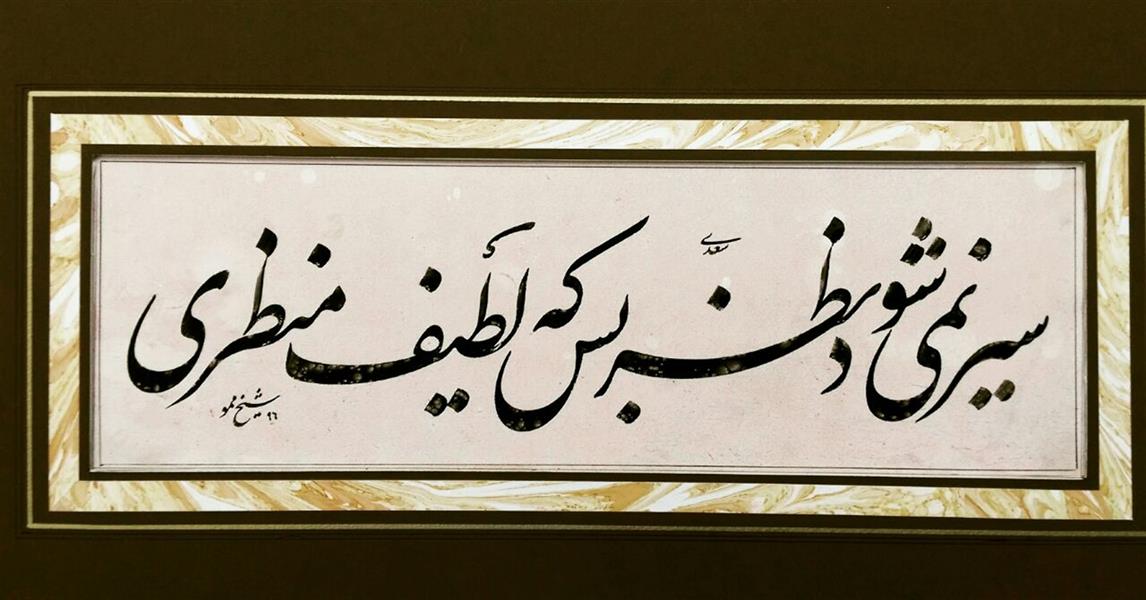 سیر نمی شود نظر بس که لطیف منظری
سعدی
شیخ ممو ۹۶